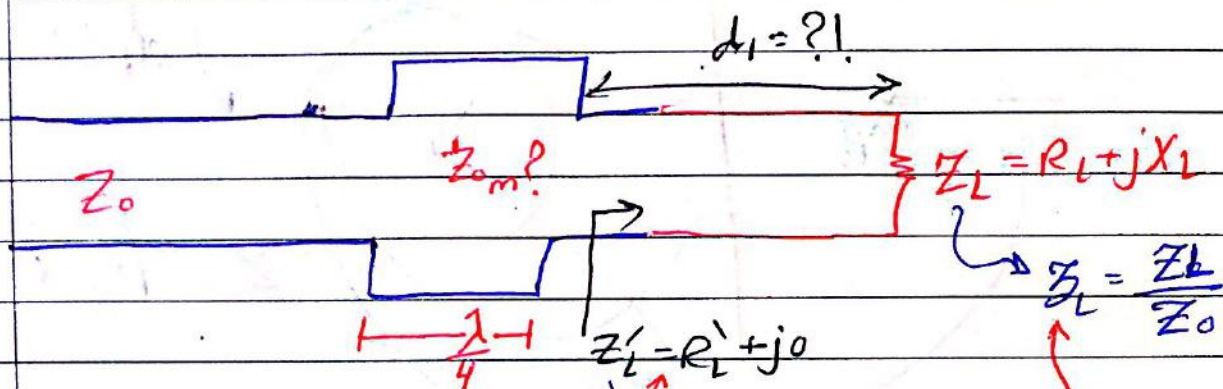 d₁ = ?!
Z₀
Z₀ₘ?
Z_L = R_L + jX_L
z_L = Z_L / Z₀
λ/4
Z'_L = R'_L + j0